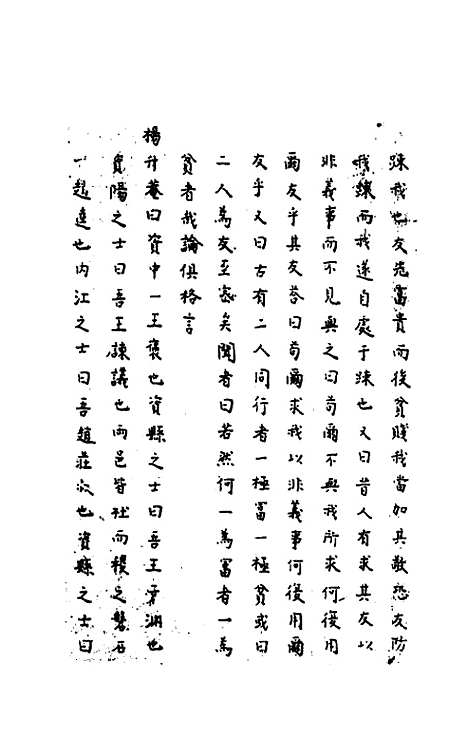 踈我也友先富貴而後貧賤我當加其敬恐友防
我踈而我遂自處于踈也又曰昔人有求其友以
非義事而不見與之曰苟爾不與我所求何復用
爾友乎其友荅曰苟爾求我以非義事何復用爾
友乎又曰古有二人同行者一極富一極貧或曰
二人為友至密矣聞者曰若然何一為富者一為
貧者哉論俱格言
楊升菴曰資中一王褒也資縣之士曰吾王子淵也
資陽之士曰吾王諫議也而邑皆社而稷之磐石
一趙逵也内江之士曰吾趙莊叔也資縣之士曰